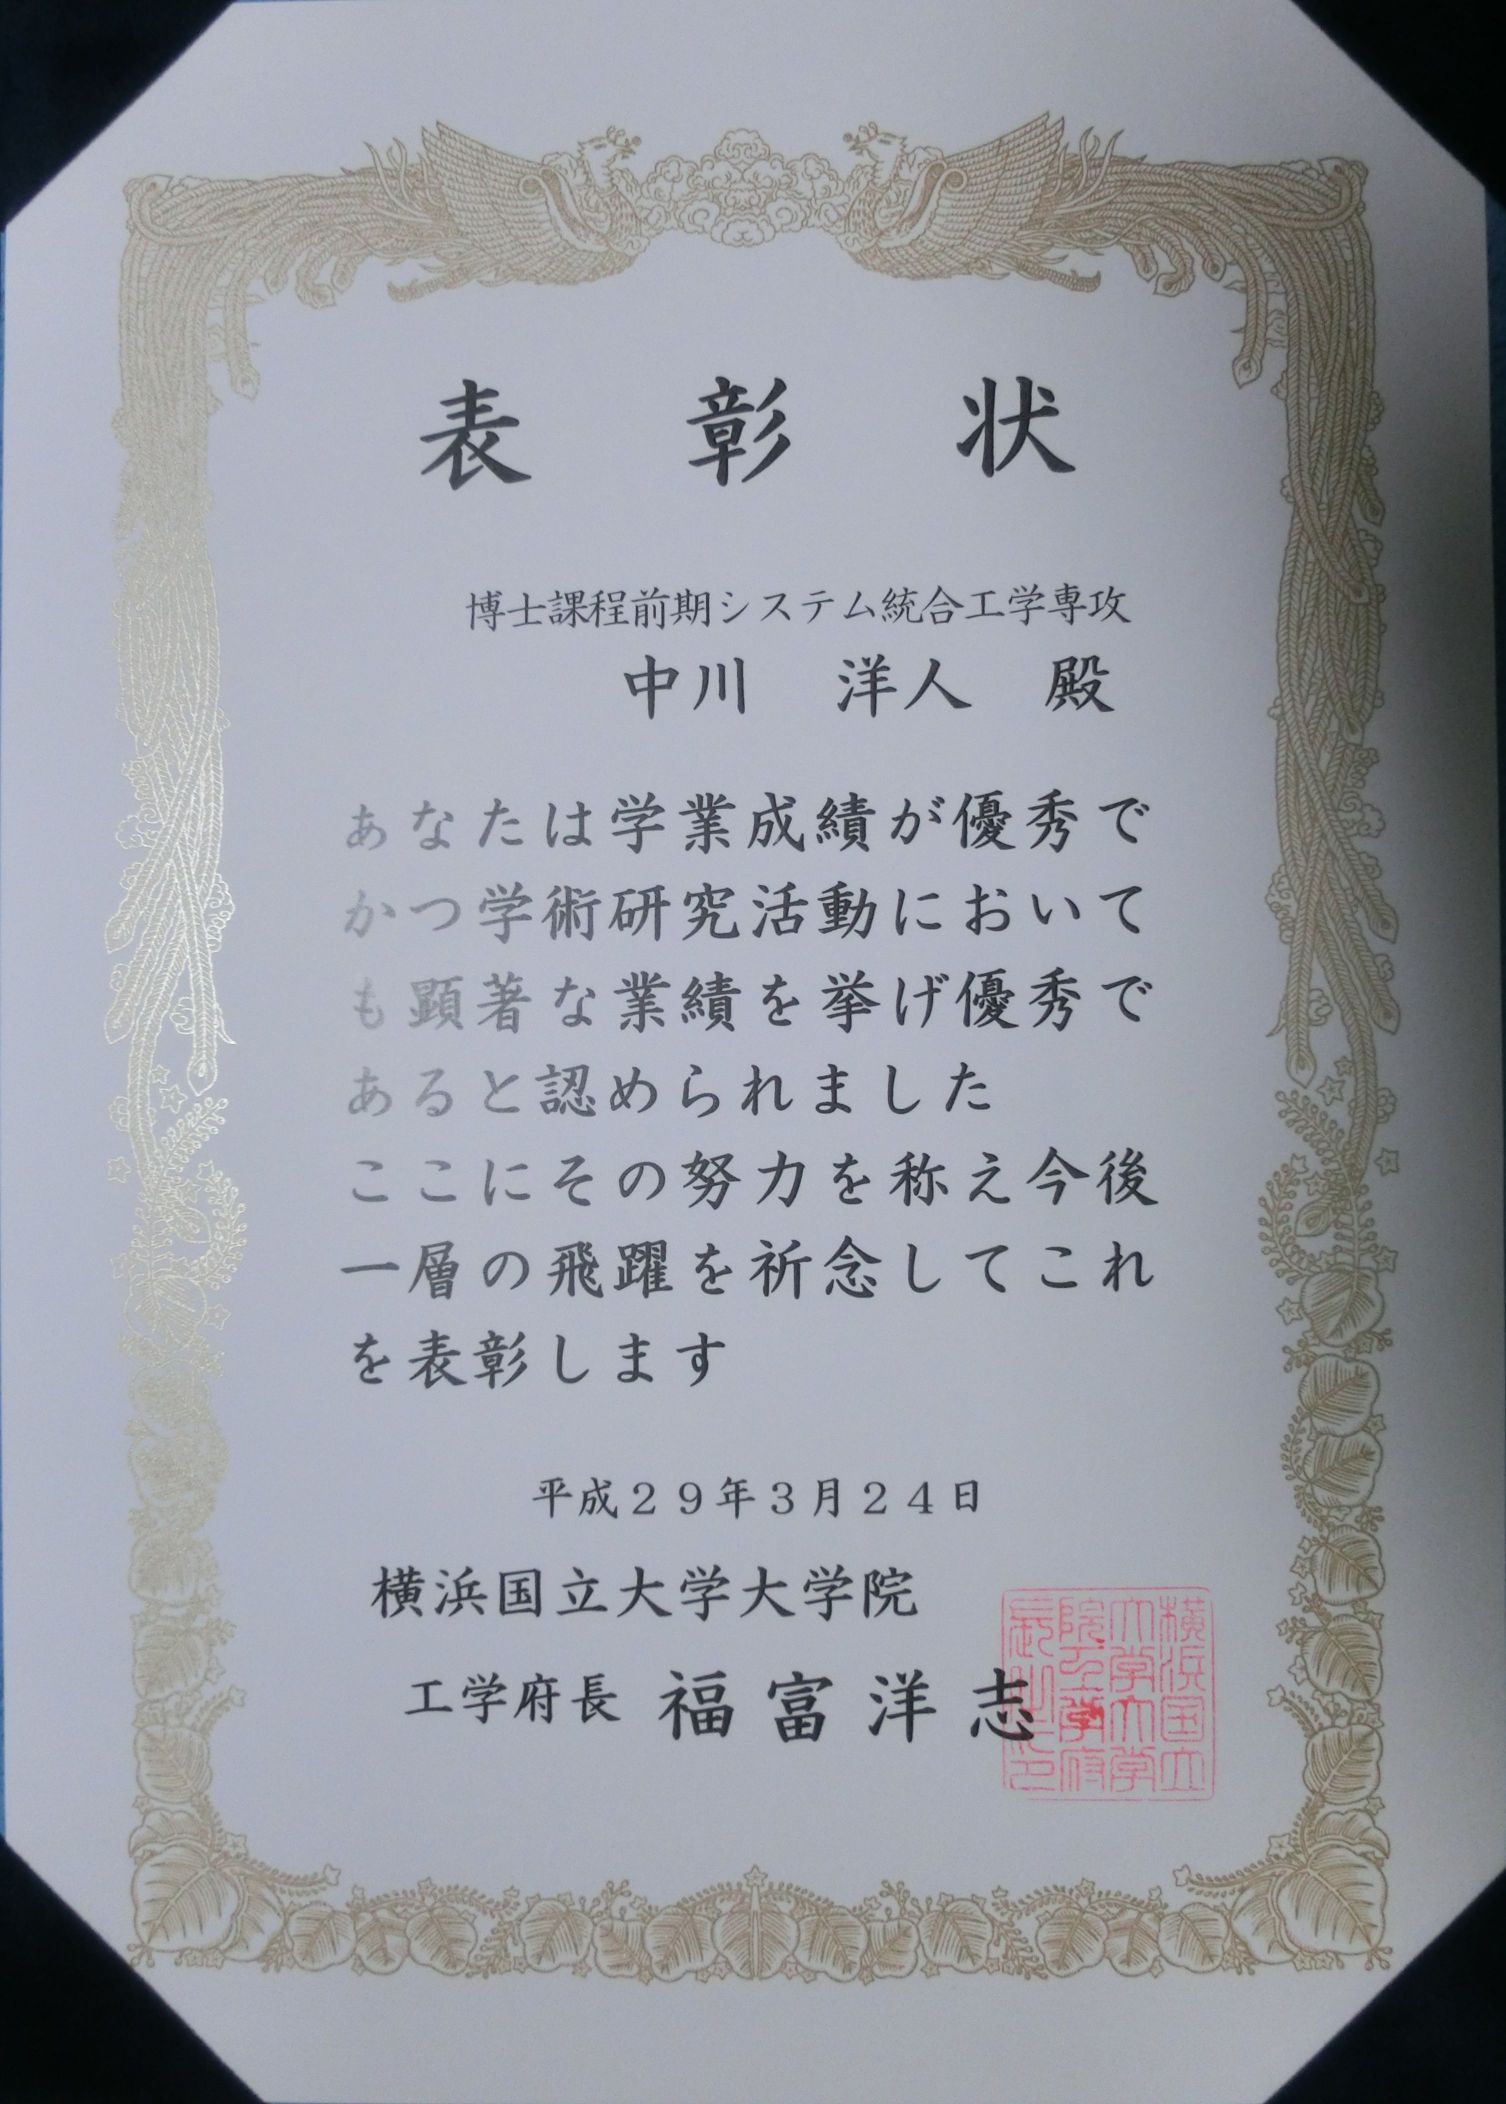 表彰状
博士課程前期システム統合工学専攻
中川　洋人　殿
あなたは学業成績が優秀で
かつ学術研究活動において
も顕著な業績を挙げ優秀で
あると認められました
ここにその努力を称え今後
一層の飛躍を祈念してこれ
を表彰します
平成２９年３月２４日
横浜国立大学大学院
工学府長 福富洋志
横浜国立
大学大学
院工学府
長之印